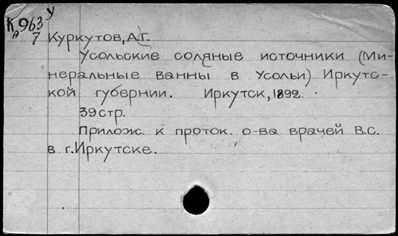 К 963 У
7
Куркутов, А.Г.
Усольские соляные источники (Ми-
неральные ванны в Усольи) Иркутс-
кой губернии. Иркутск, 1892.
39 стр.
Прилож. к проток. о-ва врачей В.С.
в г. Иркутске.